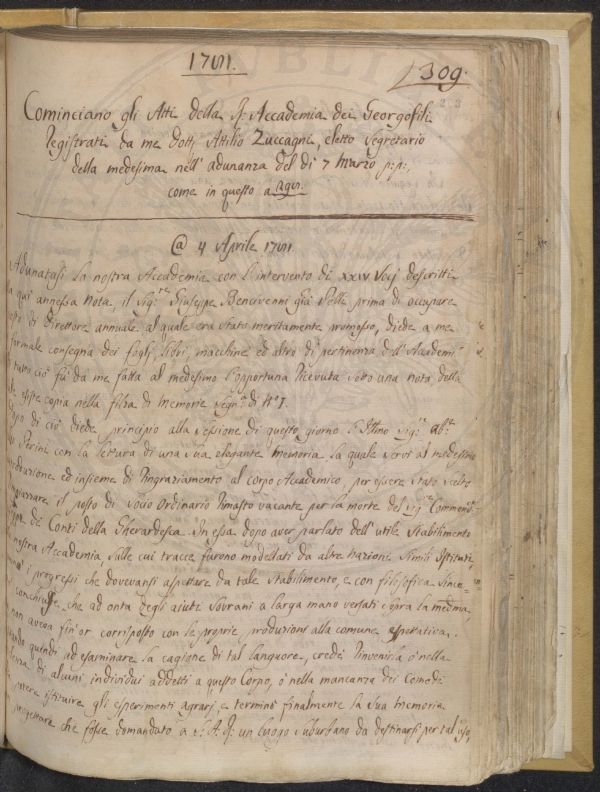 309.
Cominciano gli Atti della R: Accademia dei Georgofili
Registrati da me Dott. Attilio Zuccagni, eletto Segretario
della medesima nell' adunanza del di 7 Marzo p:p:,
come in questo a
@ 4 Aprile
Adunatasi la nostra Accademia con l'intervento di XXIV Socj descritti
qui' annessa Nota, il Sig.re Giuseppe Bencivenni già Pelli prima di occupare
di Direttore annuale al quale era stato meritamente promosso, diede a me
formale consegna dei fogli, libri, macchine ed altro di pertinenza dell' Academi
tutto ciò fù da me fatta al medesimo l'opportuna Ricevuta sotto una nota della
copia nella filza di Memorie Segn.ta di N.o 1.
di ciò diede principio alla sessione di questo giorno l' Ill.mo Sig.r Ab.te
Perini con la lettura di una sua elegante Memoria la quale servì al medesimo
ed insieme di Ringraziamento al corpo Accademico per essere stato scelto
il posto di Socio Ordinario rimasto vacante per la morte del Sig.re Commend.re
de' Conti della Gherardesca. In essa dopo aver parlato dell' utile Stabilimento
nostra Accademia sulle cui tracce furono modellati da altre Nazioni simili Istituti,
i progressi che dovevansi aspettare da tale Stabilimento, e con filosofica since=
conchiuse, che ad onta degli aiuti Sovrani a larga mano versati sopra la med.ma,
non aveva fin' or corrisposto con le proprie produzioni alla comune espettativa.
quindi ad esaminare la cagione di tal languore, credè rinvenirla o' nella
di alcuni individui addetti a questo Corpo, o' nella mancanza dei Comodi
potere istituire gli esperimenti agrarj, e terminò finalmente la sua Memoria
progettare che fosse domandato a S: A: R: un luogo suburbano da destinarsi per tal uso,